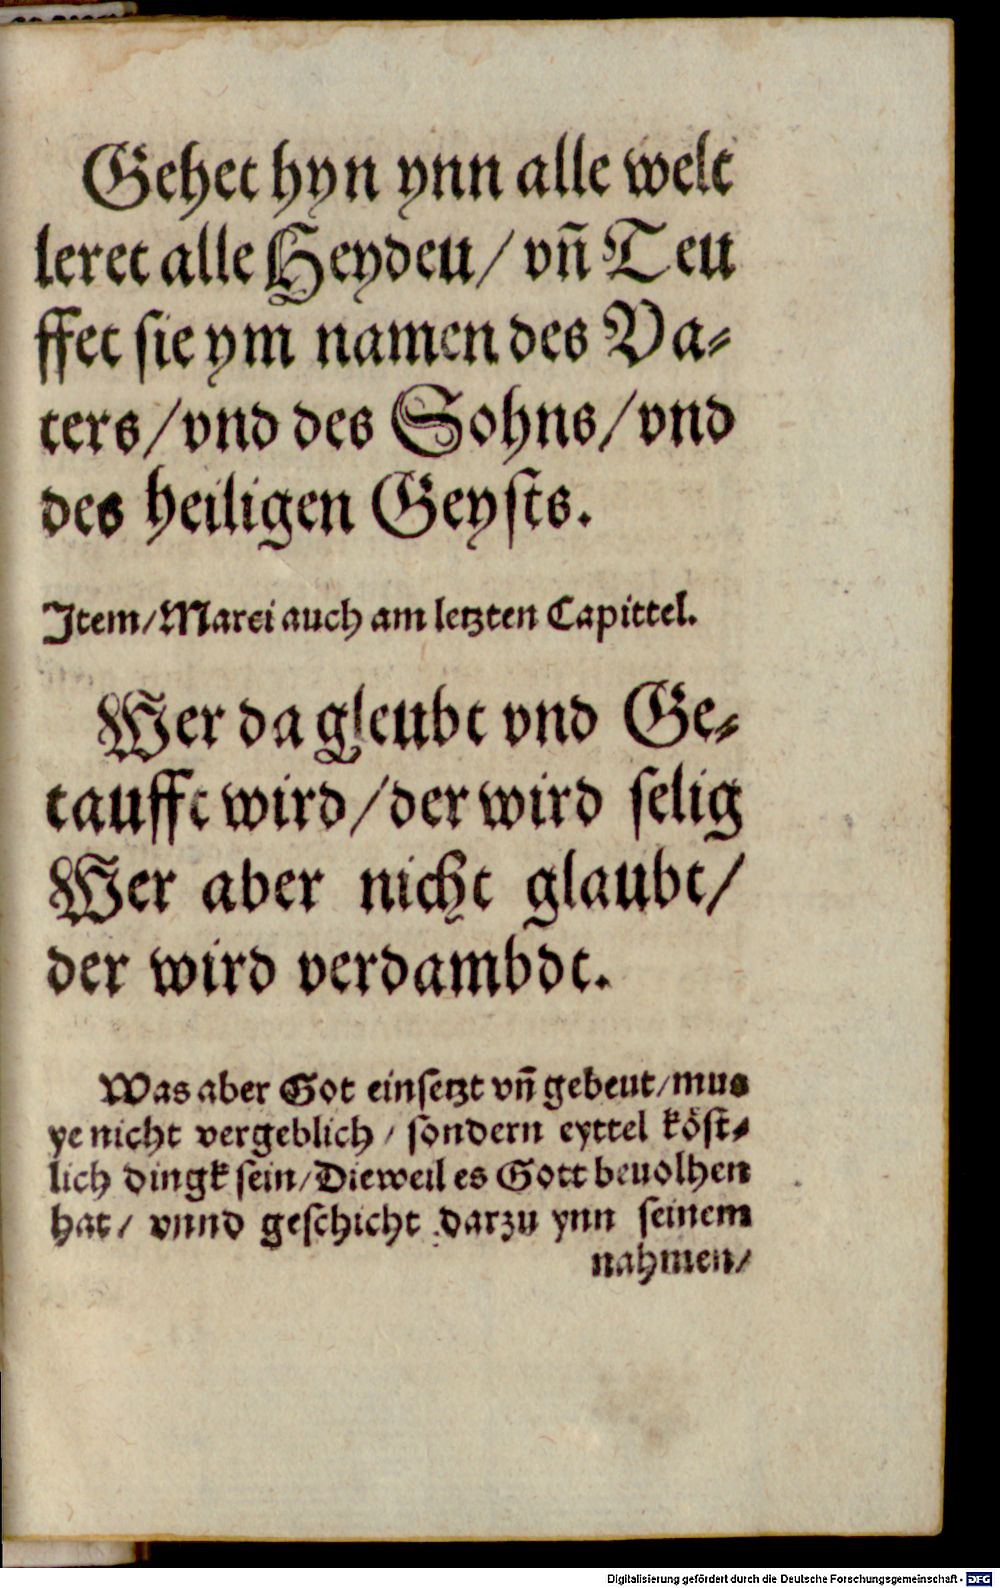 Gehet hyn ynn alle welt
leret alle Heyden/ vñ Teu
ffet sie ym namen des Va⸗
ters/vnd des Sohns/vnd
des heiligen Geysts.
Item/Marci auch am letzten Capittel.
Wer da gleubt vnd Ge⸗
taufft wird/der wird selig
Wer aber nicht glaubt/
der wird verdambdt.
Was aber Got einsetzt vñ gebeut/mus
ye nicht vergeblich/ sondern eyttel köst⸗
lich dingk sein/Dieweil es Gott beuolhen
hat/ vnnd geschicht darzu ynn seinem
nahmen/
Digitalisierung gefördert durch die Deutsche Forschungsgemeinschaft - DFG